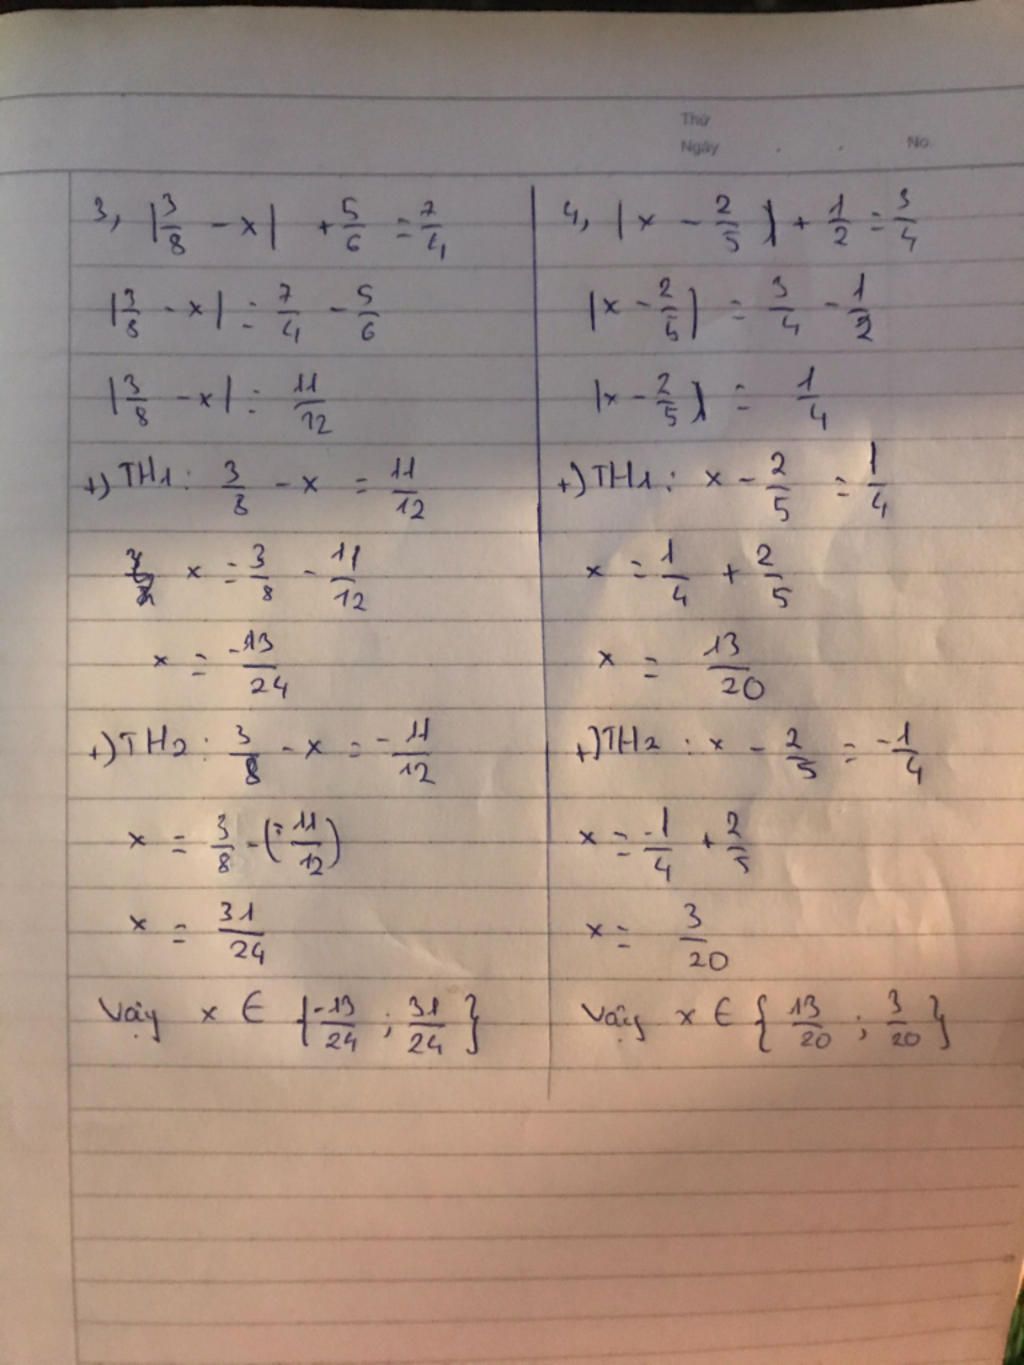 Thứ
Ngày . . No.
3, |3/8 - x| + 5/6 = 7/4
|3/8 - x| = 7/4 - 5/6
|3/8 - x| = 11/12
+) TH1: 3/8 - x = 11/12
x = 3/8 - 11/12
x = -13/24
+) TH2: 3/8 - x = -11/12
x = 3/8 - (-11/12)
x = 31/24
Vậy x ∈ {-13/24 ; 31/24}
4, |x - 2/5| + 1/2 = 3/4
|x - 2/5| = 3/4 - 1/2
|x - 2/5| = 1/4
+) TH1: x - 2/5 = 1/4
x = 1/4 + 2/5
x = 13/20
+) TH2: x - 2/5 = -1/4
x = -1/4 + 2/5
x = 3/20
Vậy x ∈ {13/20 ; 3/20}